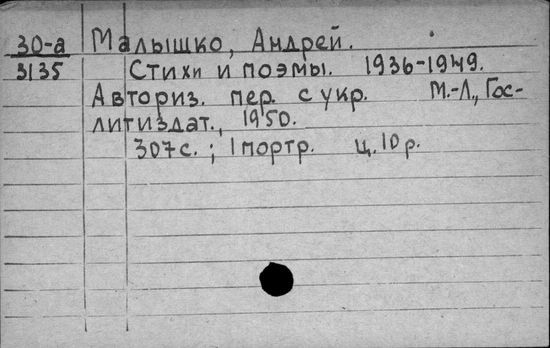 30-а Малышко, Андрей.
3135 Стихи и поэмы. 1936-1949.
Авториз. пер. с укр. М.-Л., Гос-
литиздат., 1950.
307 с. ; 1 портр. ц. 10 р.